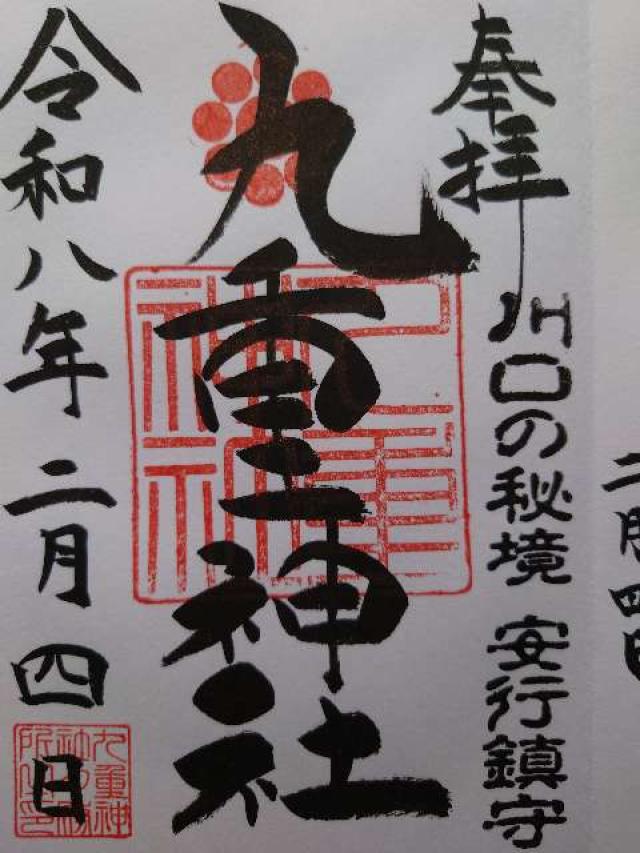 奉拝
川口の秘境 安行鎮守
九重神社
令和八年二月四日
九重神社
二月四日